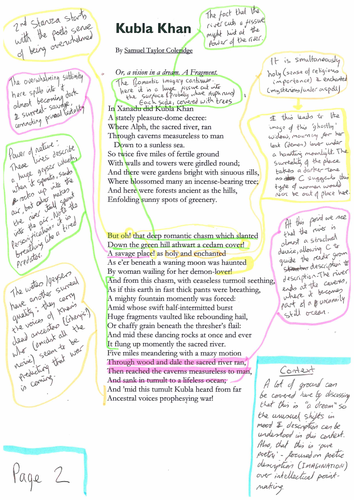 Kubla Khan
By Samuel Taylor Coleridge
Or, a vision in a dream. A Fragment.
In Xanadu did Kubla Khan
A stately pleasure-dome decree:
Where Alph, the sacred river, ran
Through caverns measureless to man
Down to a sunless sea.
So twice five miles of fertile ground
With walls and towers were girdled round;
And there were gardens bright with sinuous rills,
Where blossomed many an incense-bearing tree;
And here were forests ancient as the hills,
Enfolding sunny spots of greenery.
But oh! that deep romantic chasm which slanted
Down the green hill athwart a cedarn cover!
A savage place! as holy and enchanted
As e'er beneath a waning moon was haunted
By woman wailing for her demon-lover!
And from this chasm, with ceaseless turmoil seething,
As if this earth in fast thick pants were breathing,
A mighty fountain momently was forced:
Amid whose swift half-intermitted burst
Huge fragments vaulted like rebounding hail,
Or chaffy grain beneath the thresher's flail:
And mid these dancing rocks at once and ever
It flung up momently the sacred river.
Five miles meandering with a mazy motion
Through wood and dale the sacred river ran,
Then reached the caverns measureless to man,
And sank in tumult to a lifeless ocean;
And 'mid this tumult Kubla heard from far
Ancestral voices prophesying war!
2nd stanza starts
with the poet's sense
of being overwhelmed
The overwhelming subtlety
here spills into
almost becoming
surreal - savage,
Power of nature:
These lines describe
a huge geyser which
throws
rocks up into the
air, but also makes
the river
into the air. Note the
Personification as in
breathing like a tired
predator.
The water/geysers
have another surreal
quality: they carry
the voices of Khan's
dead ancestors
who (amidst all the
noise) seem to be
predicting that war
is coming.
Page 2
The fact that the
river cuts a fissure
might hint at the
power of the river.
The Romantic imagery continues
here it is a huge fissure cut into
the surface
Each side, covered with trees
It is simultaneously
holy (sense of religious
importance) & enchanted
It this leads to the
image of this 'ghostly'
widow, mourning for her
lost (demon) lover under
a haunting moonlight. The
surreality of the place
takes a darker tone
as C suggests this
type of woman would
not be out of place here.
At this point we see
that the river is
almost a structural
device, allowing C to
guide the reader from
description to
description. The river
ends at the caverns,
where it becomes
part of a
still ocean.
Context
A lot of ground can
be covered here by discussing
that this is 'a dream' so
the unusual shifts in
mood & description can be
understood in this context.
Also, that this is 'pure
poetry' - focused on poetic
description (IMAGINATION)
over intellectual point-
making.